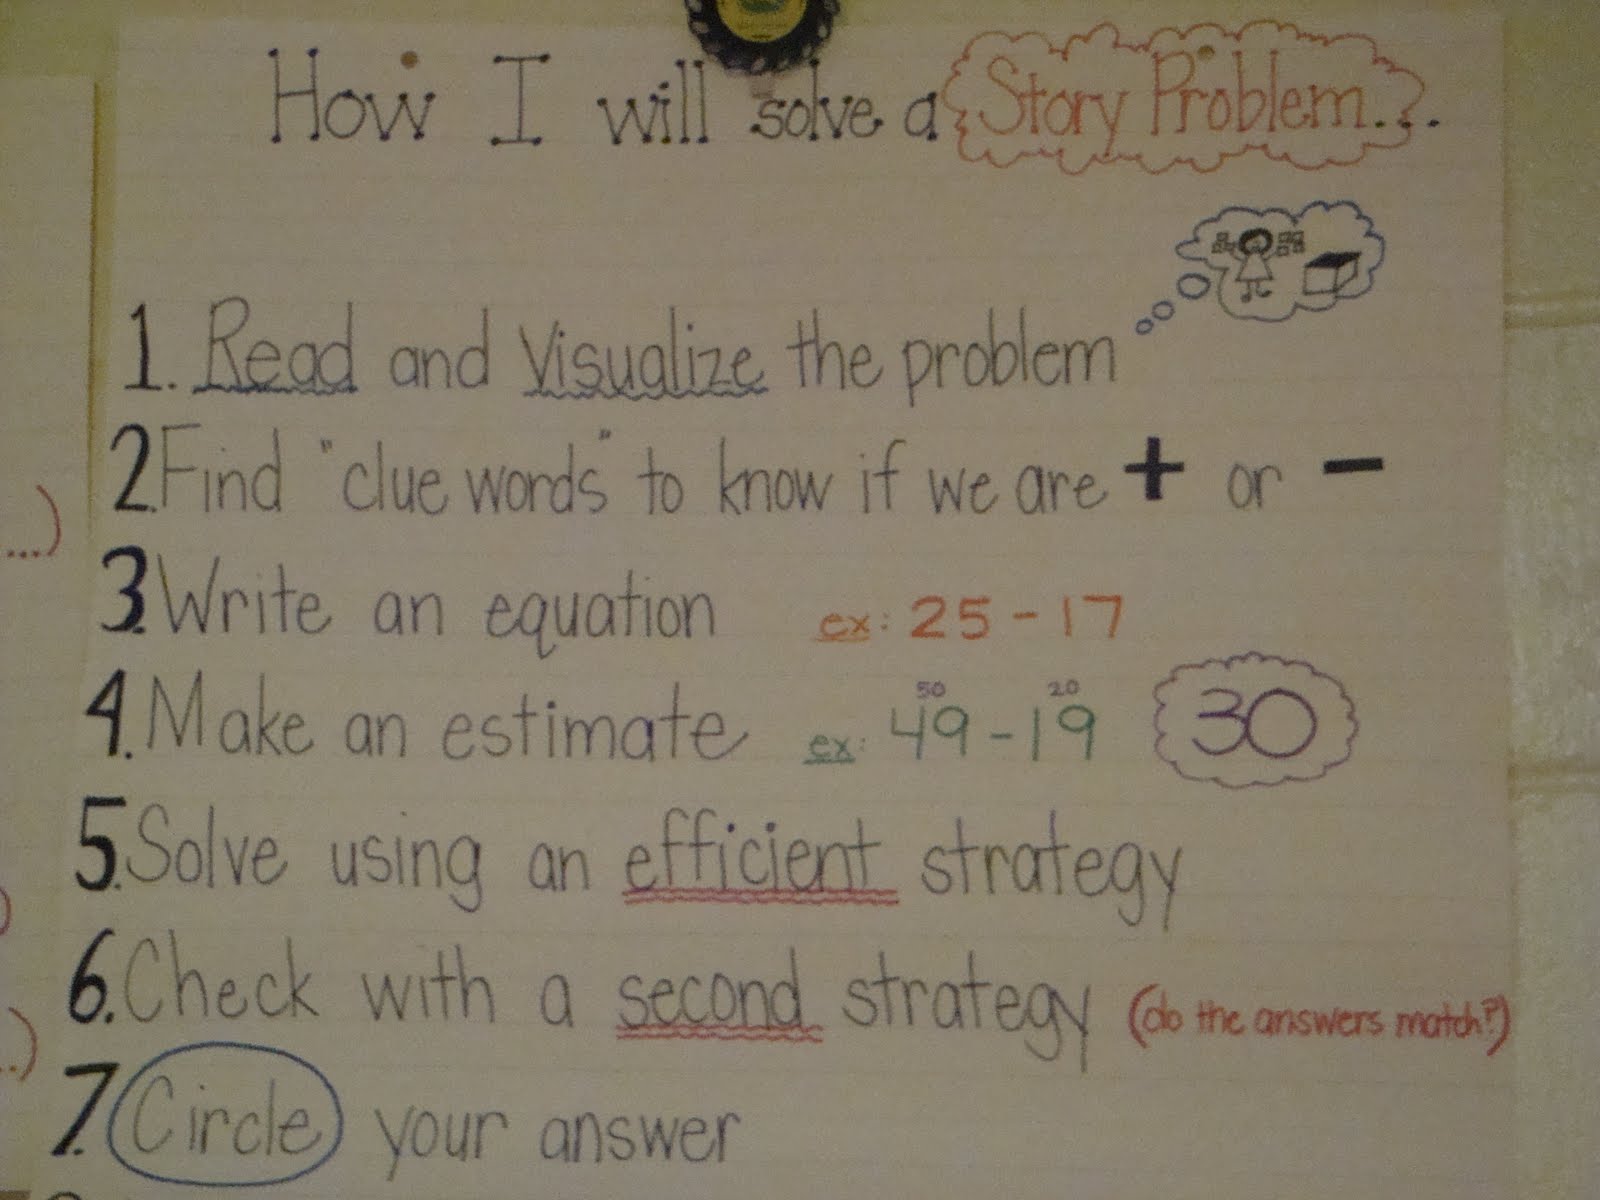 How I will solve a Story Problem...
1. Read and Visualize the problem
2. Find "clue words" to know if we are + or -
3. Write an equation ex: 25 - 17
50 20
4. Make an estimate ex: 49 - 19 30
...)
5. Solve using an efficient strategy
6. Check with a second strategy (do the answers match?)
7. Circle your answer